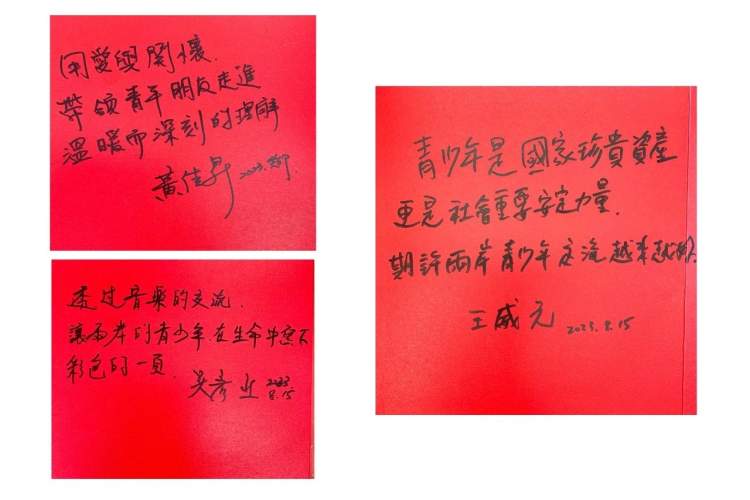 用愛與關懷.
帶領青年朋友走進
溫暖而深刻的理解
黃佳昇 2023.
透过音樂的交流.
讓兩岸的青少年在生命中寫下
彩色的一頁.
吴彥 2023
8.15
青少年是國家珍貴資產
更是社會重要安定力量.
期許兩岸青少年交流越來越
王威元 2023.8.15